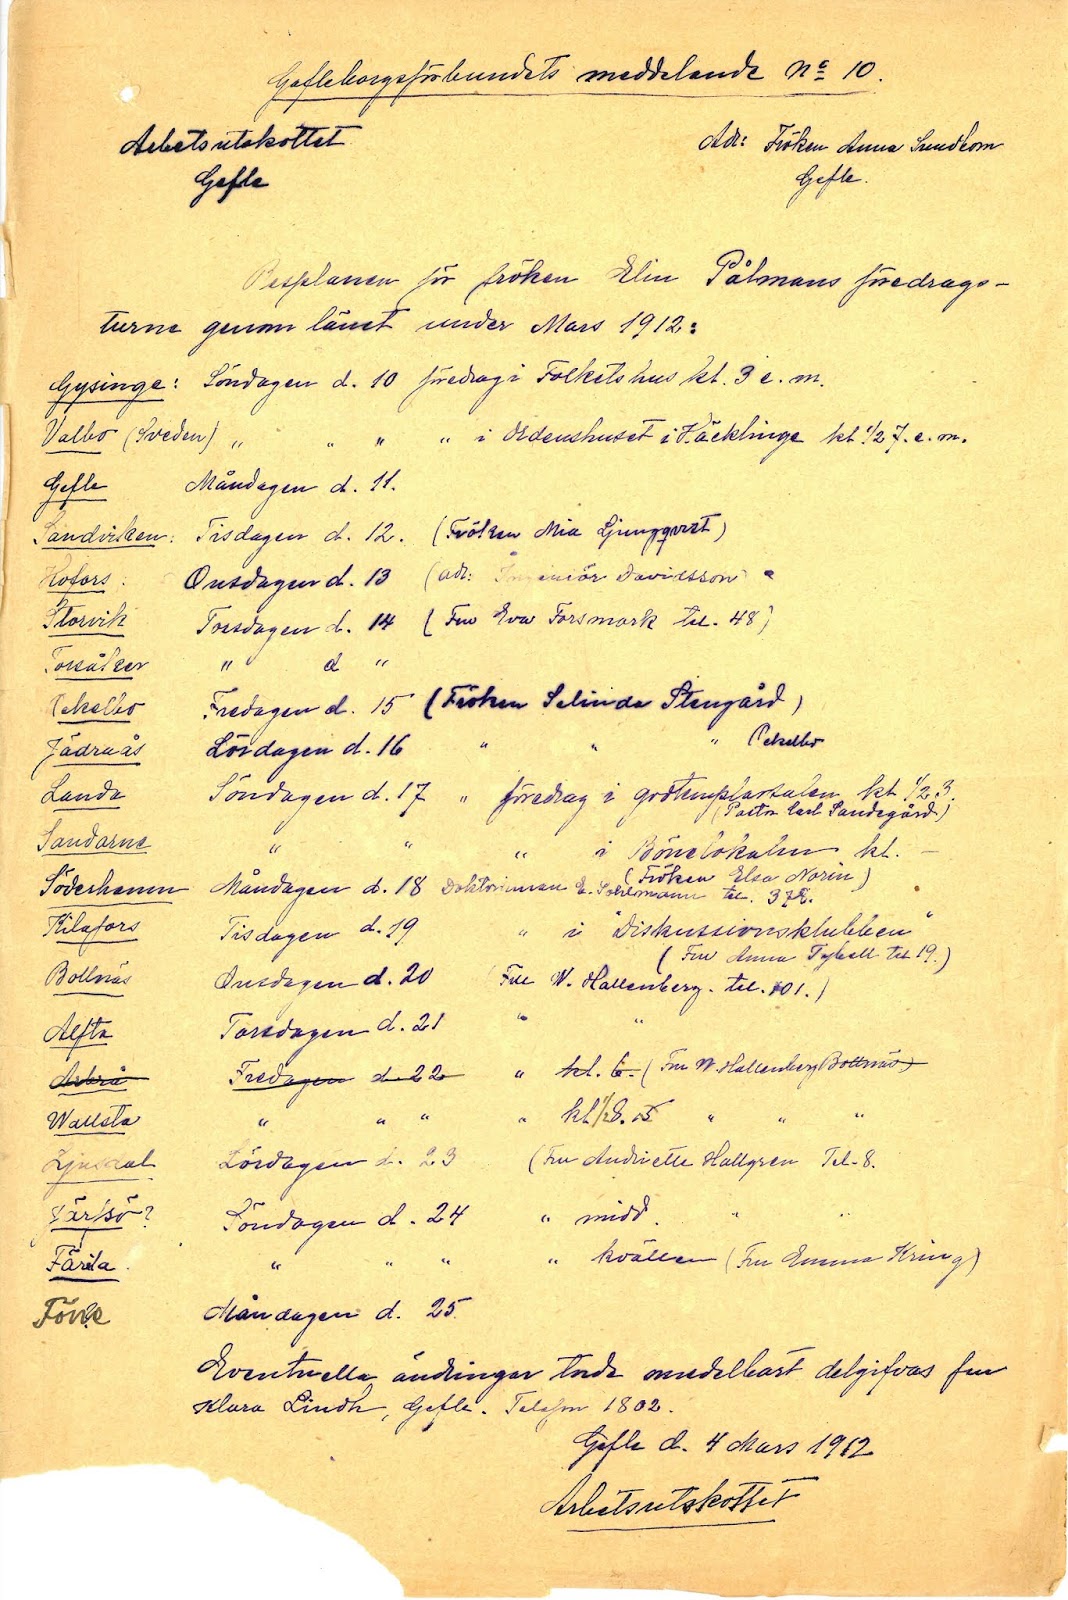 Gefleborgsförbundets meddelande No 10.
Arbetsutskottet
Gefle
Adr: Fröken Anna Sundbom
Gefle.
Resplanen för fröken Elin Påhlmans föredrags-
turne genom länet under Mars 1912:
Gysinge: Söndagen d. 10 föredrag i Folketshus kl. 3 e. m.
Valbo (Sveden) " " " " i Ordenshuset i Häcklinge kl. 1/2 7. e. m.
Gefle Måndagen d. 11.
Sandviken: Tisdagen d. 12. (Fröken Mia Ljungqvist)
Hofors. Onsdagen d. 13 (adr: Ingeniör Davidsson
Storvik Torsdagen d. 14 (Fru Eva Forsmark tel. 48)
Torsåker " d "
Ockelbo Fredagen d. 15 (Fröken Selinda Stengård)
Jädraås Lördagen d. 16 " " " Ockelbo
Landa Söndagen d. 17 " föredrag i godtemplarsalen kl 1/2 3.
(Pastor Carl Sandegård)
Sandarne " " " i Bönelokalen kl. –
(Fröken Elsa Norin)
Söderhamn Måndagen d. 18 Doktorinnan E. tel. 372.
Kilafors Tisdagen d. 19 " i "Diskussionsklubben"
(Fru Anna tel 19.)
Bollnäs Onsdagen d. 20 (Fru W. Hallenberg. tel. 101.)
Alfta Torsdagen d. 21 " "
Arbrå Fredagen d 22 " kl. 6. (Fru W. Hallenberg Bollnäs)
Wallsta " " " " kl 1/2 8. " " "
Ljusdal Lördagen d. 23 (Fru Andriette Hallgren Tel. 8.
Järfsö? Söndagen d. 24 " midd. " "
Färila. " " " " kvällen (Fru Emma Kring)
Måndagen d. 25.
Eventuella ändringar torde medelbart delgifvas fru
Klara Lindh, Gefle. Telefon 1802.
Gefle d. 4 Mars 1912
Arbetsutskottet